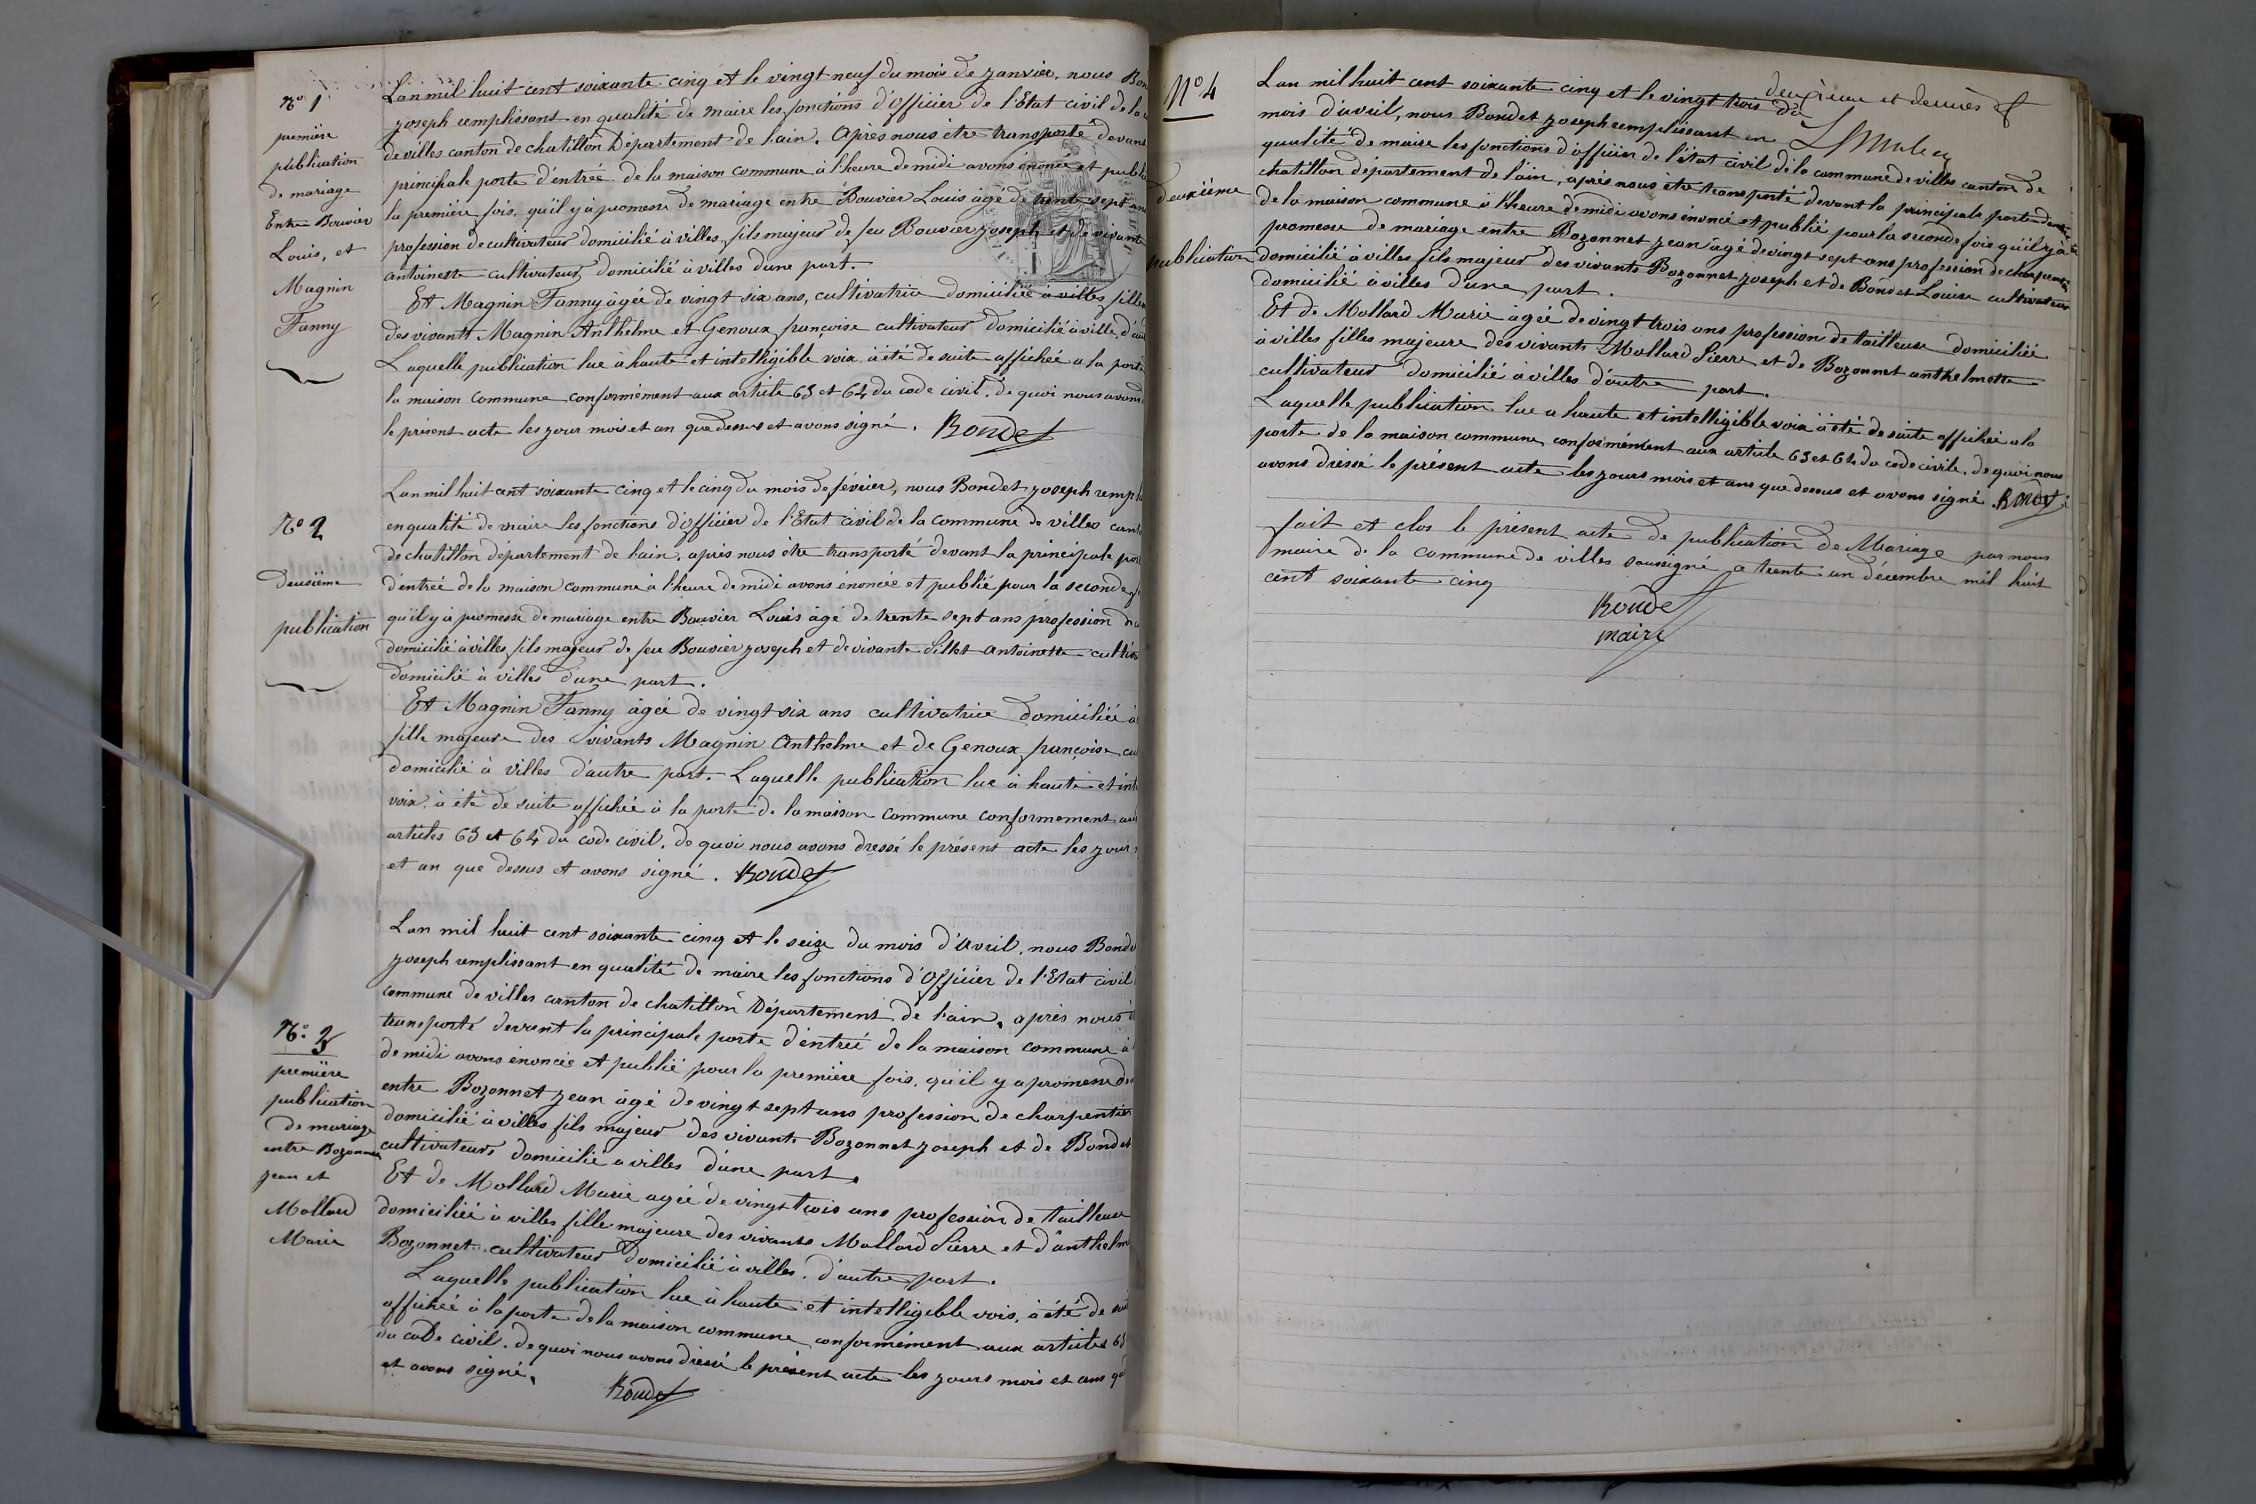 No 1
première
publication
de mariage
Entre Bouvier
Louis, et
Magnin
Fanny
L'an mil huit cent soixante cinq et le vingt neuf du mois de janvier, nous Bon
joseph remplissant en qualité de maire les fonctions d'Officier de l'Etat civil de la
de villes canton de chatillon Département de l'ain. Après nous être transporté devant
principale porte d'entrée de la maison commune à l'heure de midi avons énoncée et publi
la première fois, qu'il y à promesse de mariage entre Bouvier Louis âgé de trente sept ans
profession de cultivateur domicilié à villes, fils majeur de feu Bouvier joseph et de vivante
antoinette cultivateurs domicilié à villes d'une part.
Et Magnin Fanny âgée de vingt six ans, cultivatrice domiciliée à villes fille
des vivants Magnin Anthelme et Genoux françoise cultivateurs domicilié à ville, d'au
Laquelle publication lue à haute et intelligible voix à été de suite affichée a la porte
la maison commune conformément aux article 63 et 64 du code civil. de quoi nous avons
le présent acte les jour mois et an que dessus et avons signé. Bondet
No 2
deuxième
publication
L'an mil huit cent soixante cinq et le cinq du mois de février, nous Bondet joseph rempl
en qualité de maire les fonctions d'officier de l'Etat civil de la commune de villes cant
de chatillon département de l'ain, après nous être transporté devant la principale port
d'entrée de la maison commune à l'heure de midi avons énoncée et publié pour la seconde f
qu'il y à promesse de mariage entre Bouvier Louis âgé de trente sept ans profession de
domicilié à villes fils majeur de feu Bouvier joseph et de vivante Fillet antoinette cultiv
domicilié à villes d'une part.
Et Magnin Fanny âgée de vingt six ans cultivatrice domiciliée à
fille majeure des vivants Magnin Anthelme et de Genoux françoise cu
domicilié à villes d'autre part. Laquelle publication lue à haute et inte
voix, à été de suite affichée à la porte de la maison commune conformement aux
articles 63 et 64 du code civil, de quoi nous avons dressé le présent acte les jour
et an que dessus et avons signé. Bondet
No. 3
première
publication
de mariage
entre Bozonnet
jean et
Mollard
Marie
L'an mil huit cent soixante cinq et le seize du mois d'avril, nous Bondet
joseph remplissant en qualité de maire les fonctions d'Officier de l'Etat civil
commune de villes canton de chatillon Département de l'ain, après nous ê
transporté devant la principale porte d'entrée de la maison commune à
de midi avons énoncée et publié pour la première fois, qu'il y a promesse de
entre Bozonnet jean âgé de vingt sept ans profession de charpentier
domicilié à villes fils majeur des vivants Bozonnet joseph et de Bondet
cultivateurs domicilié a villes d'une part.
Et de Mollard Marie agée de vingt trois ans profession de tailleuse
domiciliée à villes fille majeure des vivants Mollard Pierre et d'anthelme
Bozonnet cultivateurs domicilié à villes. d'autre part.
Laquelle publication lue à haute et intelligible voix, à été de suit
affichée à la porte de la maison commune conformément aux articles 63
du code civil. de quoi nous avons dressé le présent acte les jours mois et ans que
et avons signé. Bondet
deuxième et dernier
No 4
deuxième
publication
L'an mil huit cent soixante cinq et le vingt trois du
mois d'avril, nous Bondet joseph remplissant en
qualité de maire les fonctions d'officier de l'état civil de la commune de villes canton de
chatillon département de l'ain, après nous être transporté devant la principale porte d'entrée
de la maison commune à l'heure de midi avons énoncé et publié pour la seconde fois qu'il y à
promesse de mariage entre Bozonnet jean âgé de vingt sept ans profession de charpentier
domicilié à villes fils majeur des vivants Bozonnet joseph et de Bondet Louise cultivateurs
domicilié à villes d'une part.
Et de Mollard Marie agée de vingt trois ans profession de tailleuse domiciliée
à villes filles majeure des vivants Mollard Pierre et de Bozonnet anthelmette
cultivateurs domicilié a villes d'autre part.
Laquelle publication lue a haute et intelligible voix à été de suite affichée a la
porte de la maison commune, conformément aux article 63 et 64 du code civile, de quoi nous
avons dressé le présent acte les jours mois et ans que dessus et avons signé. Bondet
fait et clos le présent acte de publication de Mariage par nous
maire de la commune de villes soussigné ce trente un décembre mil huit
cent soixante cinq
Bondet
maire